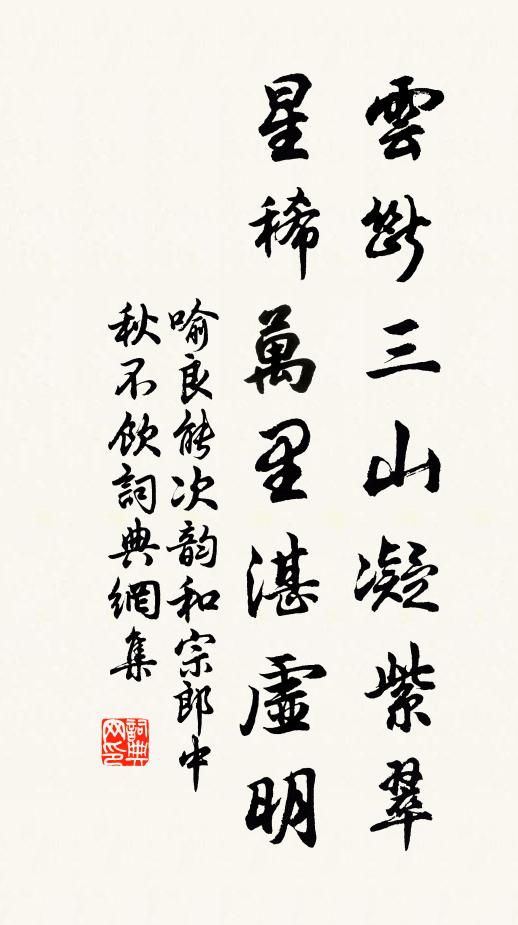 雲斷三山凝紫翠
星稀萬里湛虛明
喻良能次韵和宗郎中
秋不飲詞典網集
詞典
网印